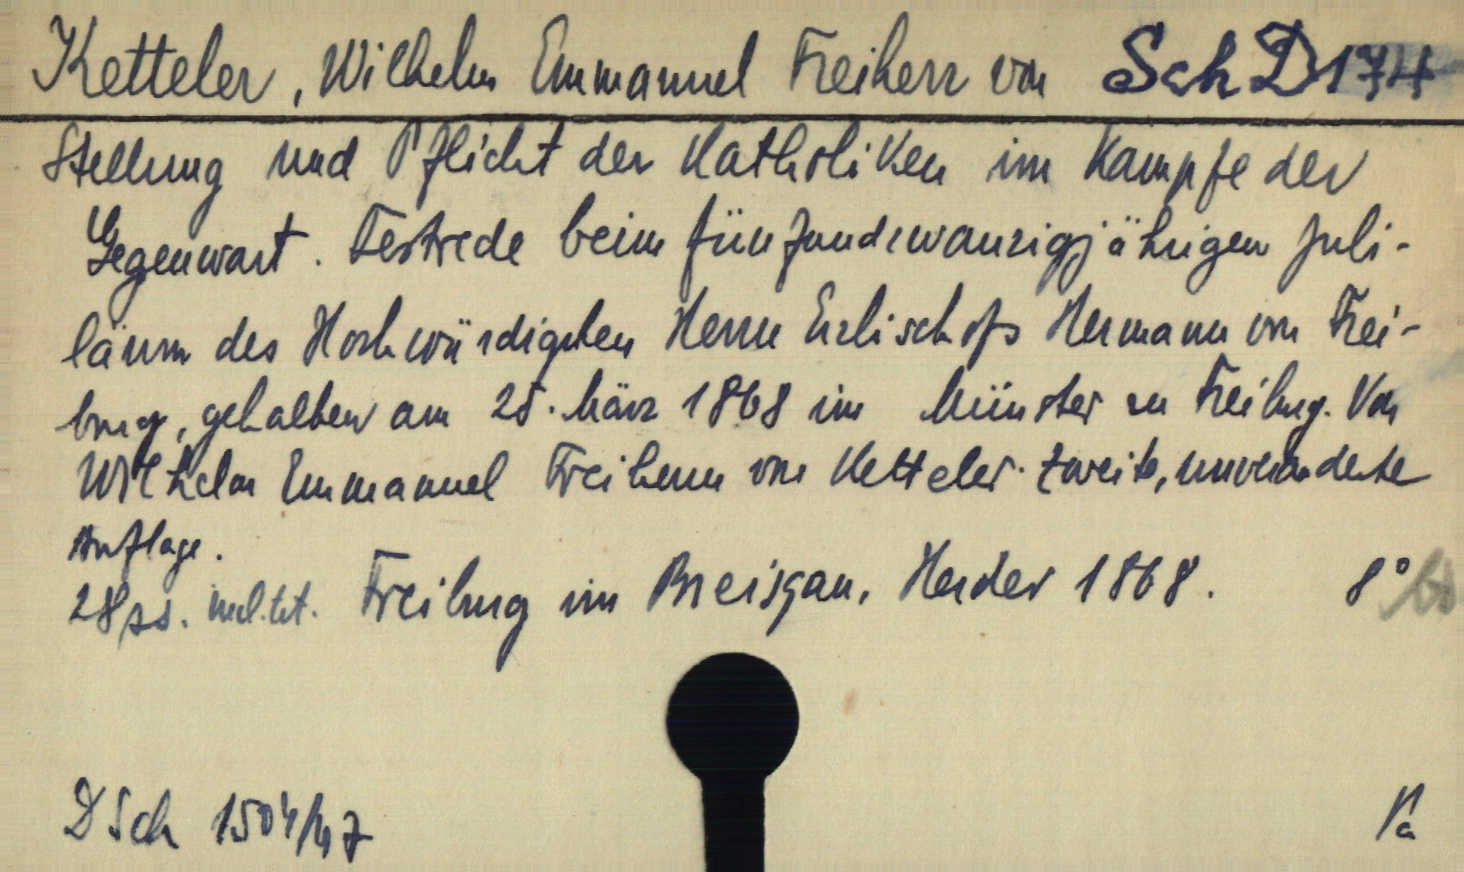 Ketteler, Wilhelm Emmanuel Freiherr von Sch D 174
Stellung und Pflicht der Katholiken im Kampfe der
Gegenwart. Festrede beim fünfundzwanzigjährigen Jubi-
läum des Hochwürdigsten Herrn Erzbischofs Hermann von Frei-
burg, gehalten am 25. März 1868 im Münster zu Freiburg. Von
Wilhelm Emmanuel Freiherrn von Ketteler. Zweite, unveränderte
Auflage.
28 SS. incl. tit. Freiburg im Breisgau, Herder 1868. 8°
D Sch 1504/47